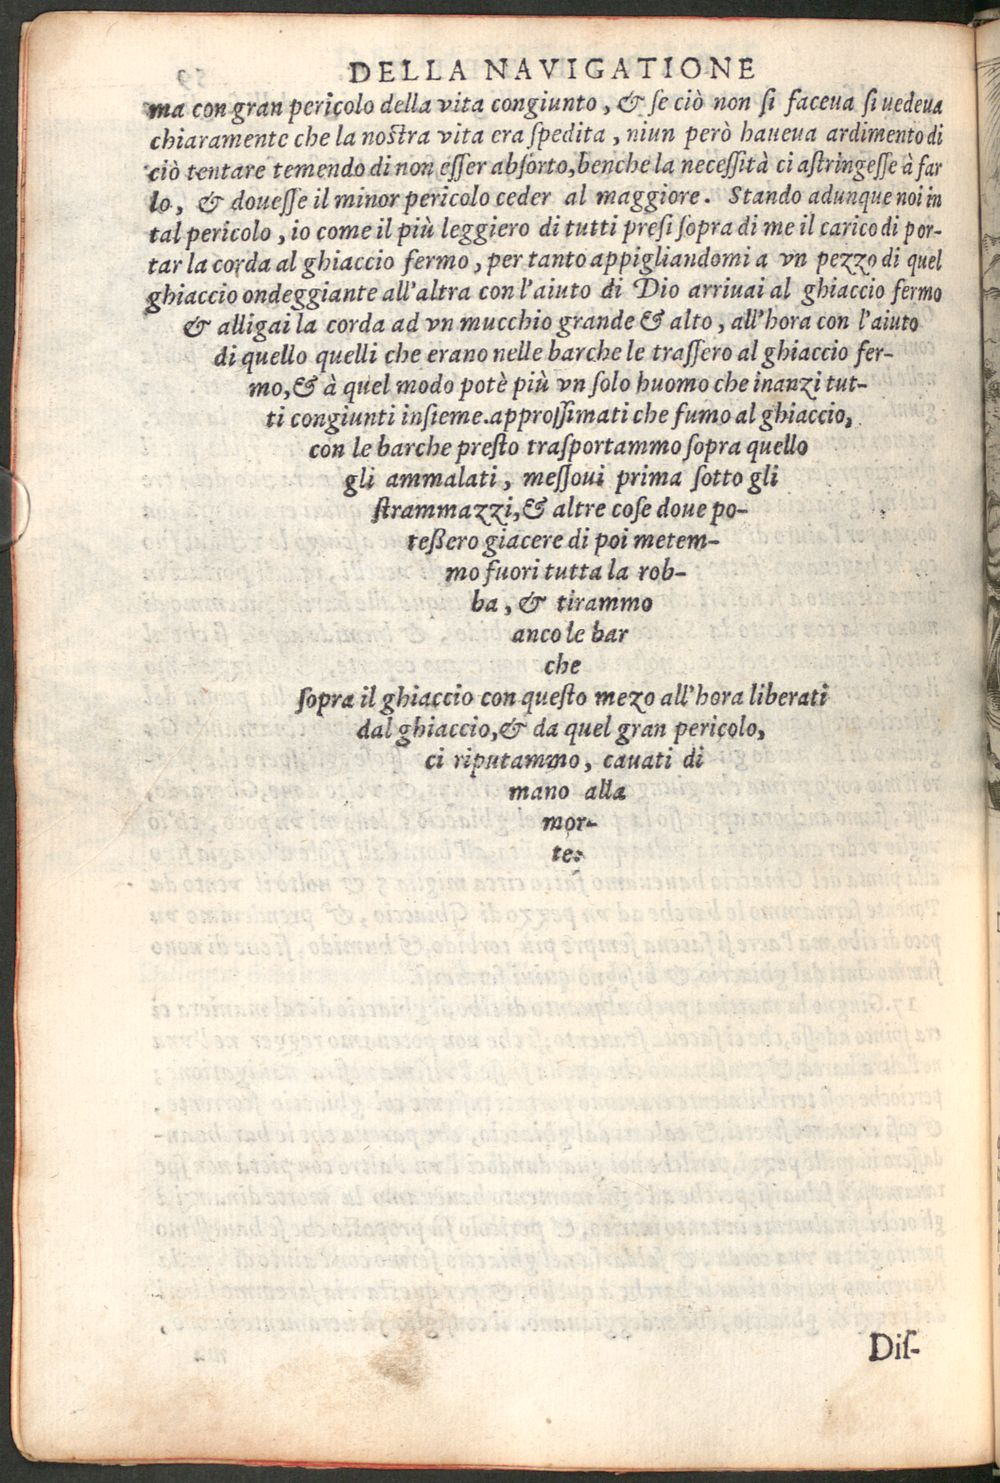 DELLA NAVIGATIONE
ma con gran pericolo della vita congiunto, & ſe ciò non ſi faceua ſi uedeua
chiaramente che la noſtra vita era ſpedita, niun però haueua ardimento di
ciò tentare temendo di non eſſer abſorto, benche la neceſſità ci aſtringeſſe à far
lo, & doueſſe il minor pericolo ceder al maggiore. Stando adunque noi in
tal pericolo, io come il più leggiero di tutti preſi ſopra di me il carico di por-
tar la corda al ghiaccio fermo, per tanto appigliandomi a vn pezzo di quel
ghiaccio ondeggiante all'altra con l'aiuto di Dio arriuai al ghiaccio fermo
& alligai la corda ad vn mucchio grande & alto, all'hora con l'aiuto
di quello quelli che erano nelle barche le traſſero al ghiaccio fer-
mo, & à quel modo potè più vn ſolo huomo che inanzi tut-
ti congiunti inſieme. approſſimati che fumo al ghiaccio,
con le barche preſto traſportammo ſopra quello
gli ammalati, meſſoui prima ſotto gli
ſtrammazzi, & altre coſe doue po-
teßero giacere di poi metem-
mo fuori tutta la rob-
ba, & tirammo
anco le bar
che
ſopra il ghiaccio con queſto mezo all'hora liberati
dal ghiaccio, & da quel gran pericolo,
ci riputammo, cauati di
mano alla
mor-
te.
Diſ-